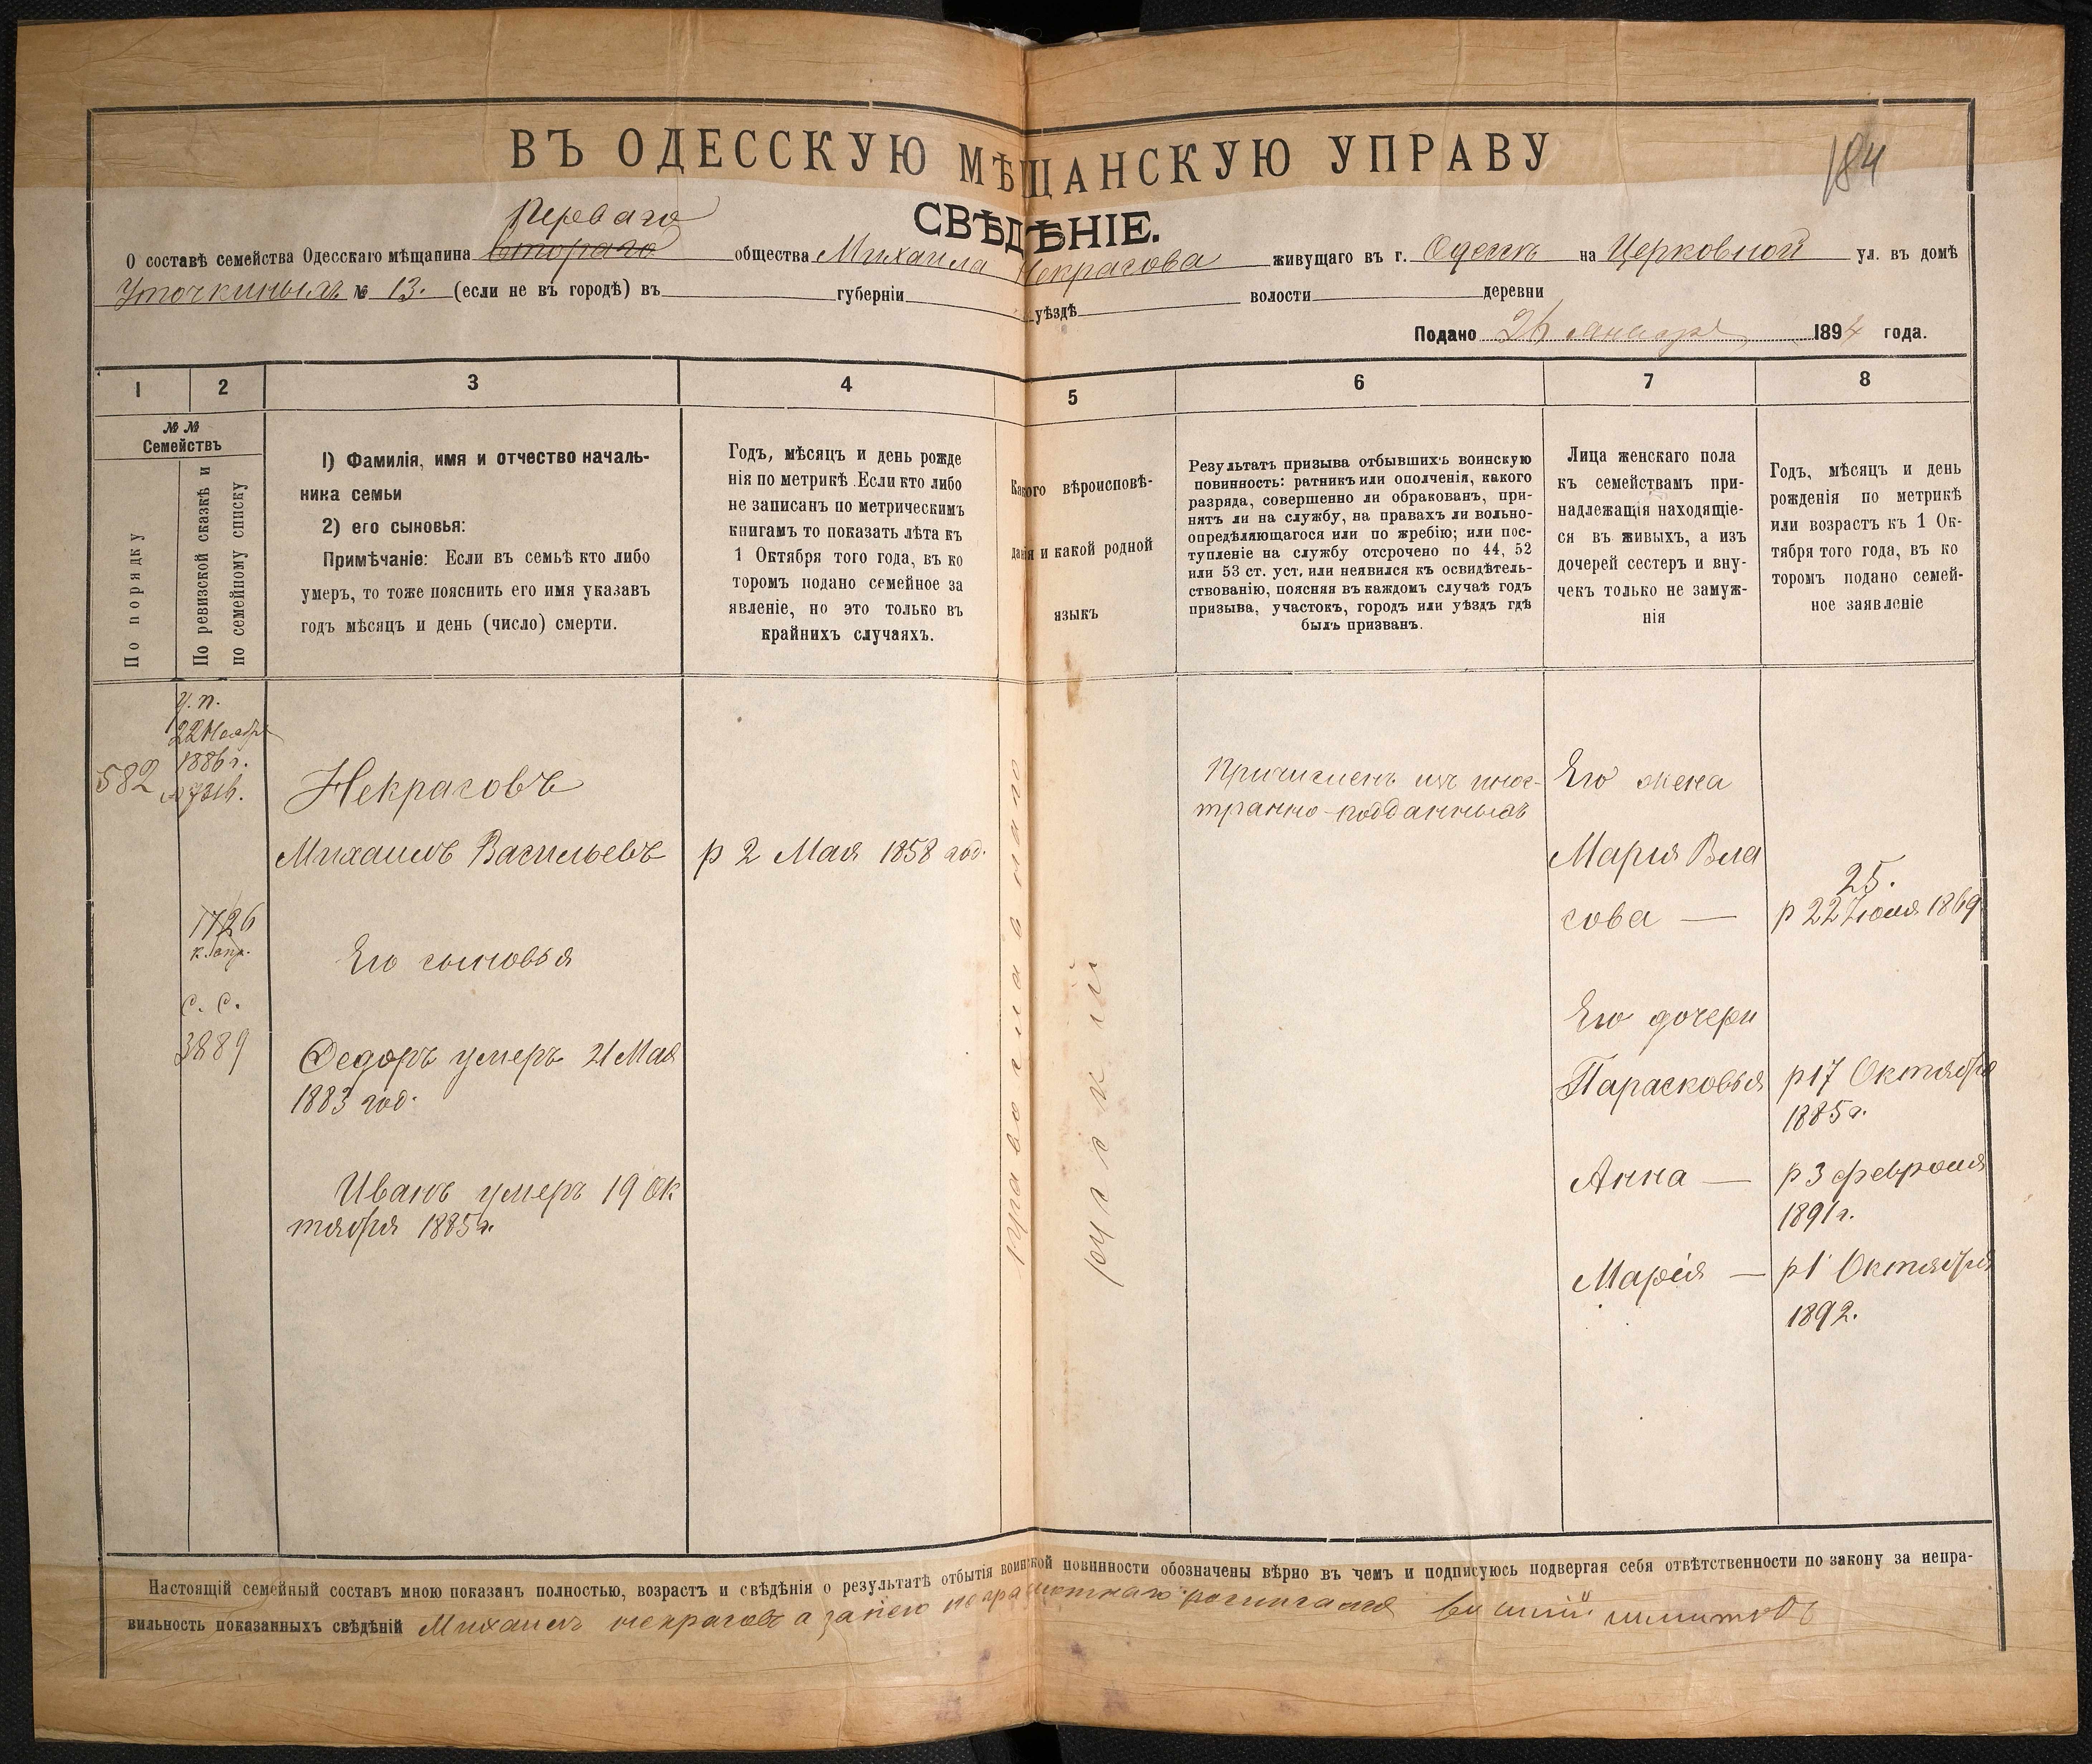 184
ВЪ ОДЕССКУЮ МѢЩАНСКУЮ УПРАВУ
СВѢДѢНІЕ.
Перваго
О составѣ семейства Одесскаго мѣщанина Втораго общества Михаила Некрасова живущаго въ г. Одессѣ на Церковной ул. въ домѣ
Уточкиныхъ № 13. (если не въ городѣ) въ губерніи уѣздѣ волости деревни
Подано 26 января 1894 года.
1 2 3 4 5 6 7 8
№ №
Семействъ
По порядку
По ревизской сказкѣ и
по семейному списку
1) Фамилія, имя и отчество началь-
ника семьи
2) его сыновья:
Примѣчаніе: Если въ семьѣ кто либо
умеръ, то тоже пояснить его имя указавъ
годъ мѣсяцъ и день (число) смерти.
Годъ, мѣсяцъ и день рожде
нія по метрикѣ. Если кто либо
не записанъ по метрическимъ
книгамъ то показать лѣта къ
1 Октября того года, въ ко
торомъ подано семейное за
явленіе, но это только въ
крайнихъ случаяхъ.
Какого вѣроисповѣ-
данія и какой родной
языкъ
Результатъ призыва отбывшихъ воинскую
повинность: ратникъ или ополченія, какого
разряда, совершенно ли обракованъ, при-
нятъ ли на службу, на правахъ ли вольно-
опредѣляющагося или по жребію; или пос-
тупленіе на службу отсрочено по 44, 52
или 53 ст. уст. или неявился къ освидѣтель-
ствованію, поясняя въ каждомъ случаѣ годъ
призыва, участокъ, городъ или уѣздъ гдѣ
былъ призванъ.
Лица женскаго пола
къ семействамъ при-
надлежащія находящіе-
ся въ живыхъ, а изъ
дочерей сестеръ и вну-
чекъ только не замуж-
нія
Годъ, мѣсяцъ и день
рожденія по метрикѣ
или возрастъ къ 1 Ок-
тября того года, въ ко
торомъ подано семей-
ное заявленіе
582
у. п.
22 Ноября
1886 г.
1726
с. с.
3889
Некрасовъ
Михаилъ Васильевъ
Его сыновья
Федоръ умеръ 21 Мая
1883 год.
Иванъ умеръ 19 Ок
тября 1885 г.
р 2 Мая 1858 год.
православнаго
русскій
Причисленъ изъ инос-
транно-подданныхъ
Его жена
Мария Вла
сова —
Его дочери
Парасковья
Анна —
Марія —
25.
р 22 Июля 1869
р 17 Октября
1885 г.
р 3 февроля
1891 г.
р 1 Октября
1892.
Настоящій семейный составъ мною показанъ полностью, возрастъ и свѣдѣнія о результатѣ отбытія воинской повинности обозначены вѣрно въ чемъ и подписуюсь подвергая себя отвѣтственности по закону за непра-
вильность показанныхъ свѣдѣній Михаилъ некрасовъ а занего неграмотнаго росписался